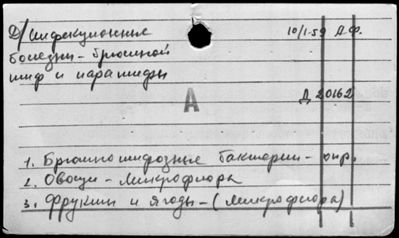 Д/Инфекционные 10/1-59 Д.Ф.
болезни - брюшной
тиф и паратифы
Д 20162
А
1. Брюшнотифозные бактерии - опр.
2. Овощи - Микрофлора
3. Фрукты и ягоды - (Микрофлора)